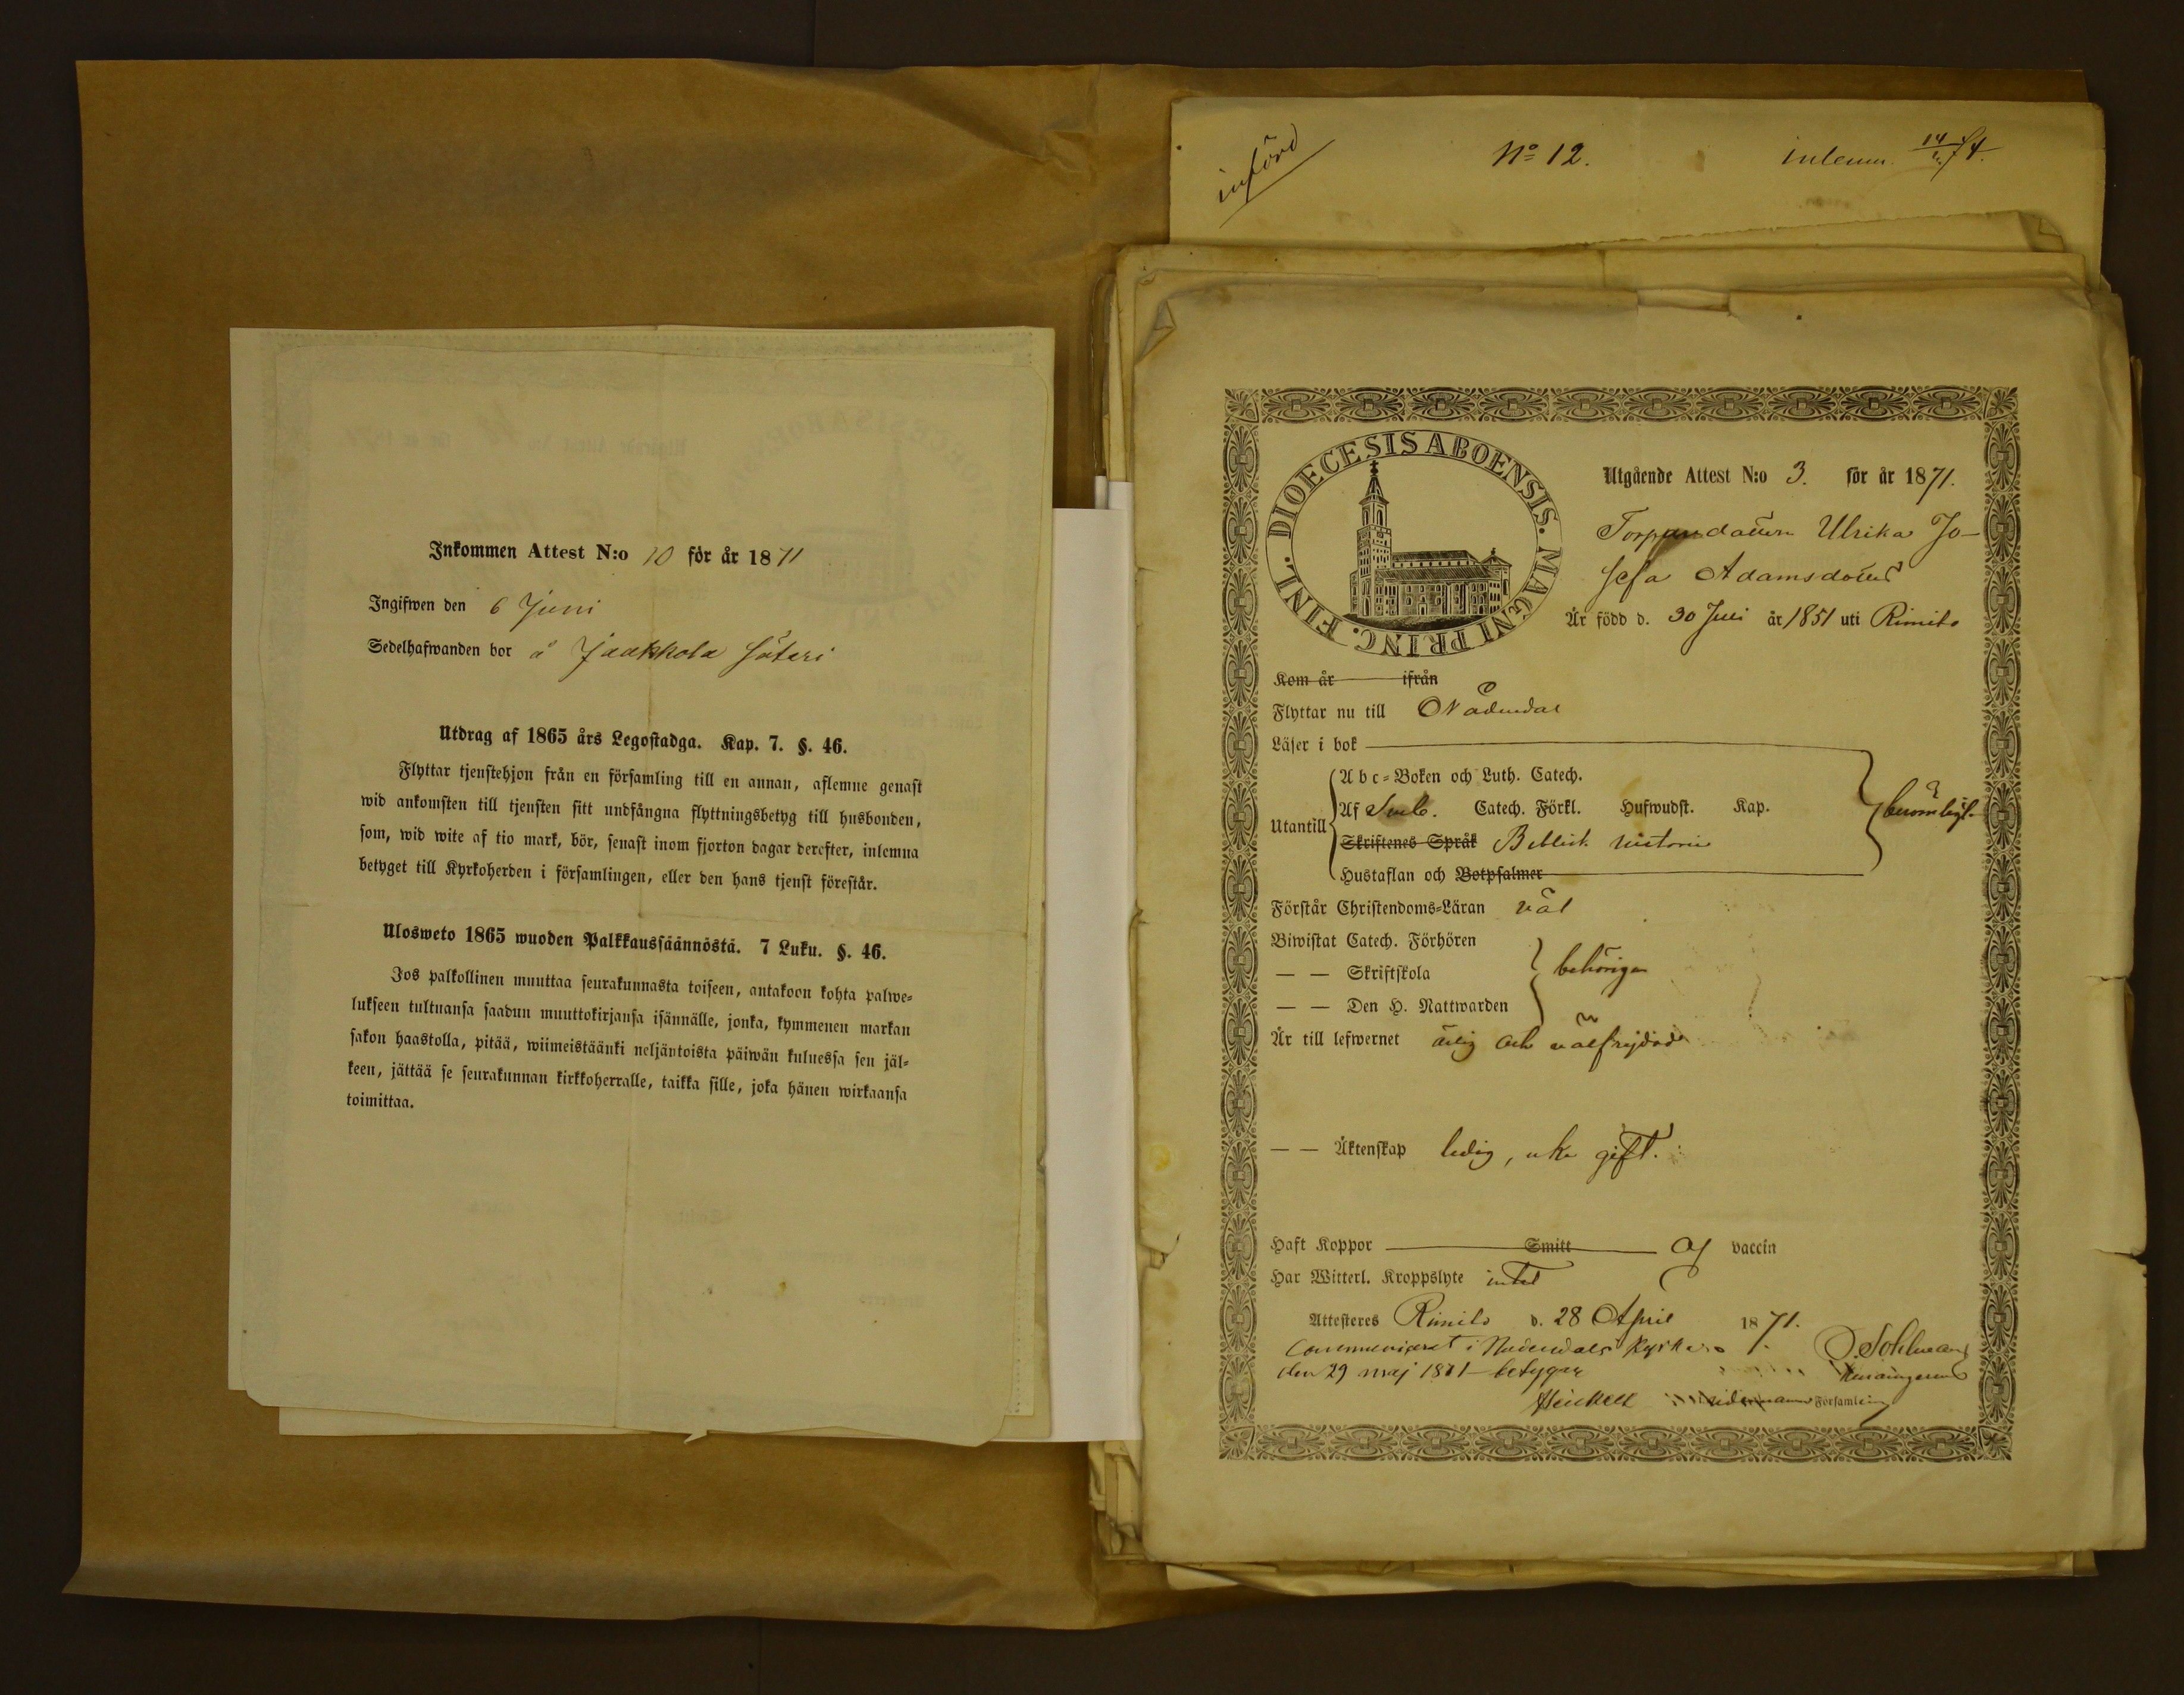 Inkommen Attest N:o 10 för år 1871
Ingifwen den 6 Juni
Sedelhafwanden bor å Jaakkola säteri
Utdrag af 1865 års Legostadga. Kap. 7. §. 46.
Flyttar tjenstehjon från en församling till en annan, aflemne genast
wid ankomsten till tjensten sitt undfångna flyttningsbetyg till husbonden,
som, wid wite af tio mark, bör, senast inom fjorton dagar derefter, inlemna
betyget till Kyrkoherden i församlingen, eller den hans tjenst förestår.
Ulosweto 1865 wuoden Palkkaussäännöstä. 7 Luku. §. 46.
Jos palkollinen muuttaa seurakunnasta toiseen, antakoon kohta palwe=
lukseen tultuansa saadun muuttokirjansa isännälle, jonka, kymmenen markan
sakon haastolla, pitää, wiimeistäänki neljäntoista päiwän kuluessa sen jäl=
keen, jättää se seurakunnan kirkkoherralle, taikka sille, joka hänen wirkaansa
toimittaa.
införd
No 12.
inlemn. 74.
DIOECESIS ABOENSIS. MAGNI PRINC. FINL.
Utgående Attest N:o 3. för år 1871.
Ulrika Jo-
sefa Adamsdotter
Är född d. 30 Juli år 1851 uti Rimito
Kom år ifrån
Flyttar nu till Nådendal
Läser i bok
Utantill
Abc=Boken och Luth. Catech.
Af Svib. Catech. Förkl. Hufwudst. Kap.
Skriftenes Språk Biblisk historie
Hustaflan och Botpsalmer
berömligt
Förstår Christendoms=Läran väl
Biwistat Catech. Förhören
— — Skriftskola
— — Den H. Nattwarden
behörigen
Är till lefwernet ärlig och välfrejdad
— — Äktenskap ledig, icke gift.
Haft Koppor Smitt Af vaccin
Har Witterl. Kroppslyte intet
Attesteres Rimito d. 28 April 1871.
Communicerat i Nådendals kyrka
den 29 maj 1871 betygar
Heickell
Församling